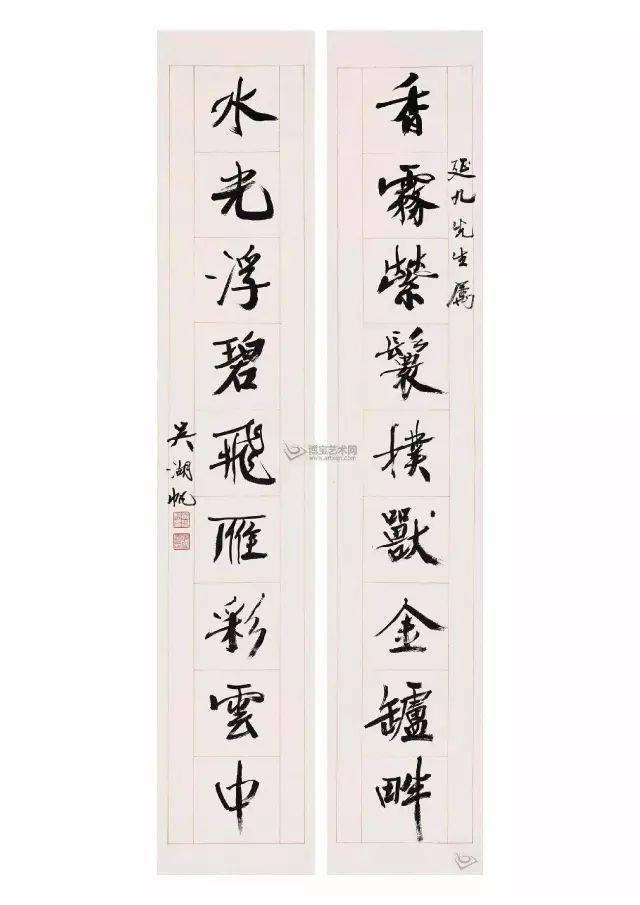 延九先生属
香霧縈鬟撲獸金罏畔
水光浮碧飛雁彩雲中
吴湖帆
博宝艺术网
www.artxun.com